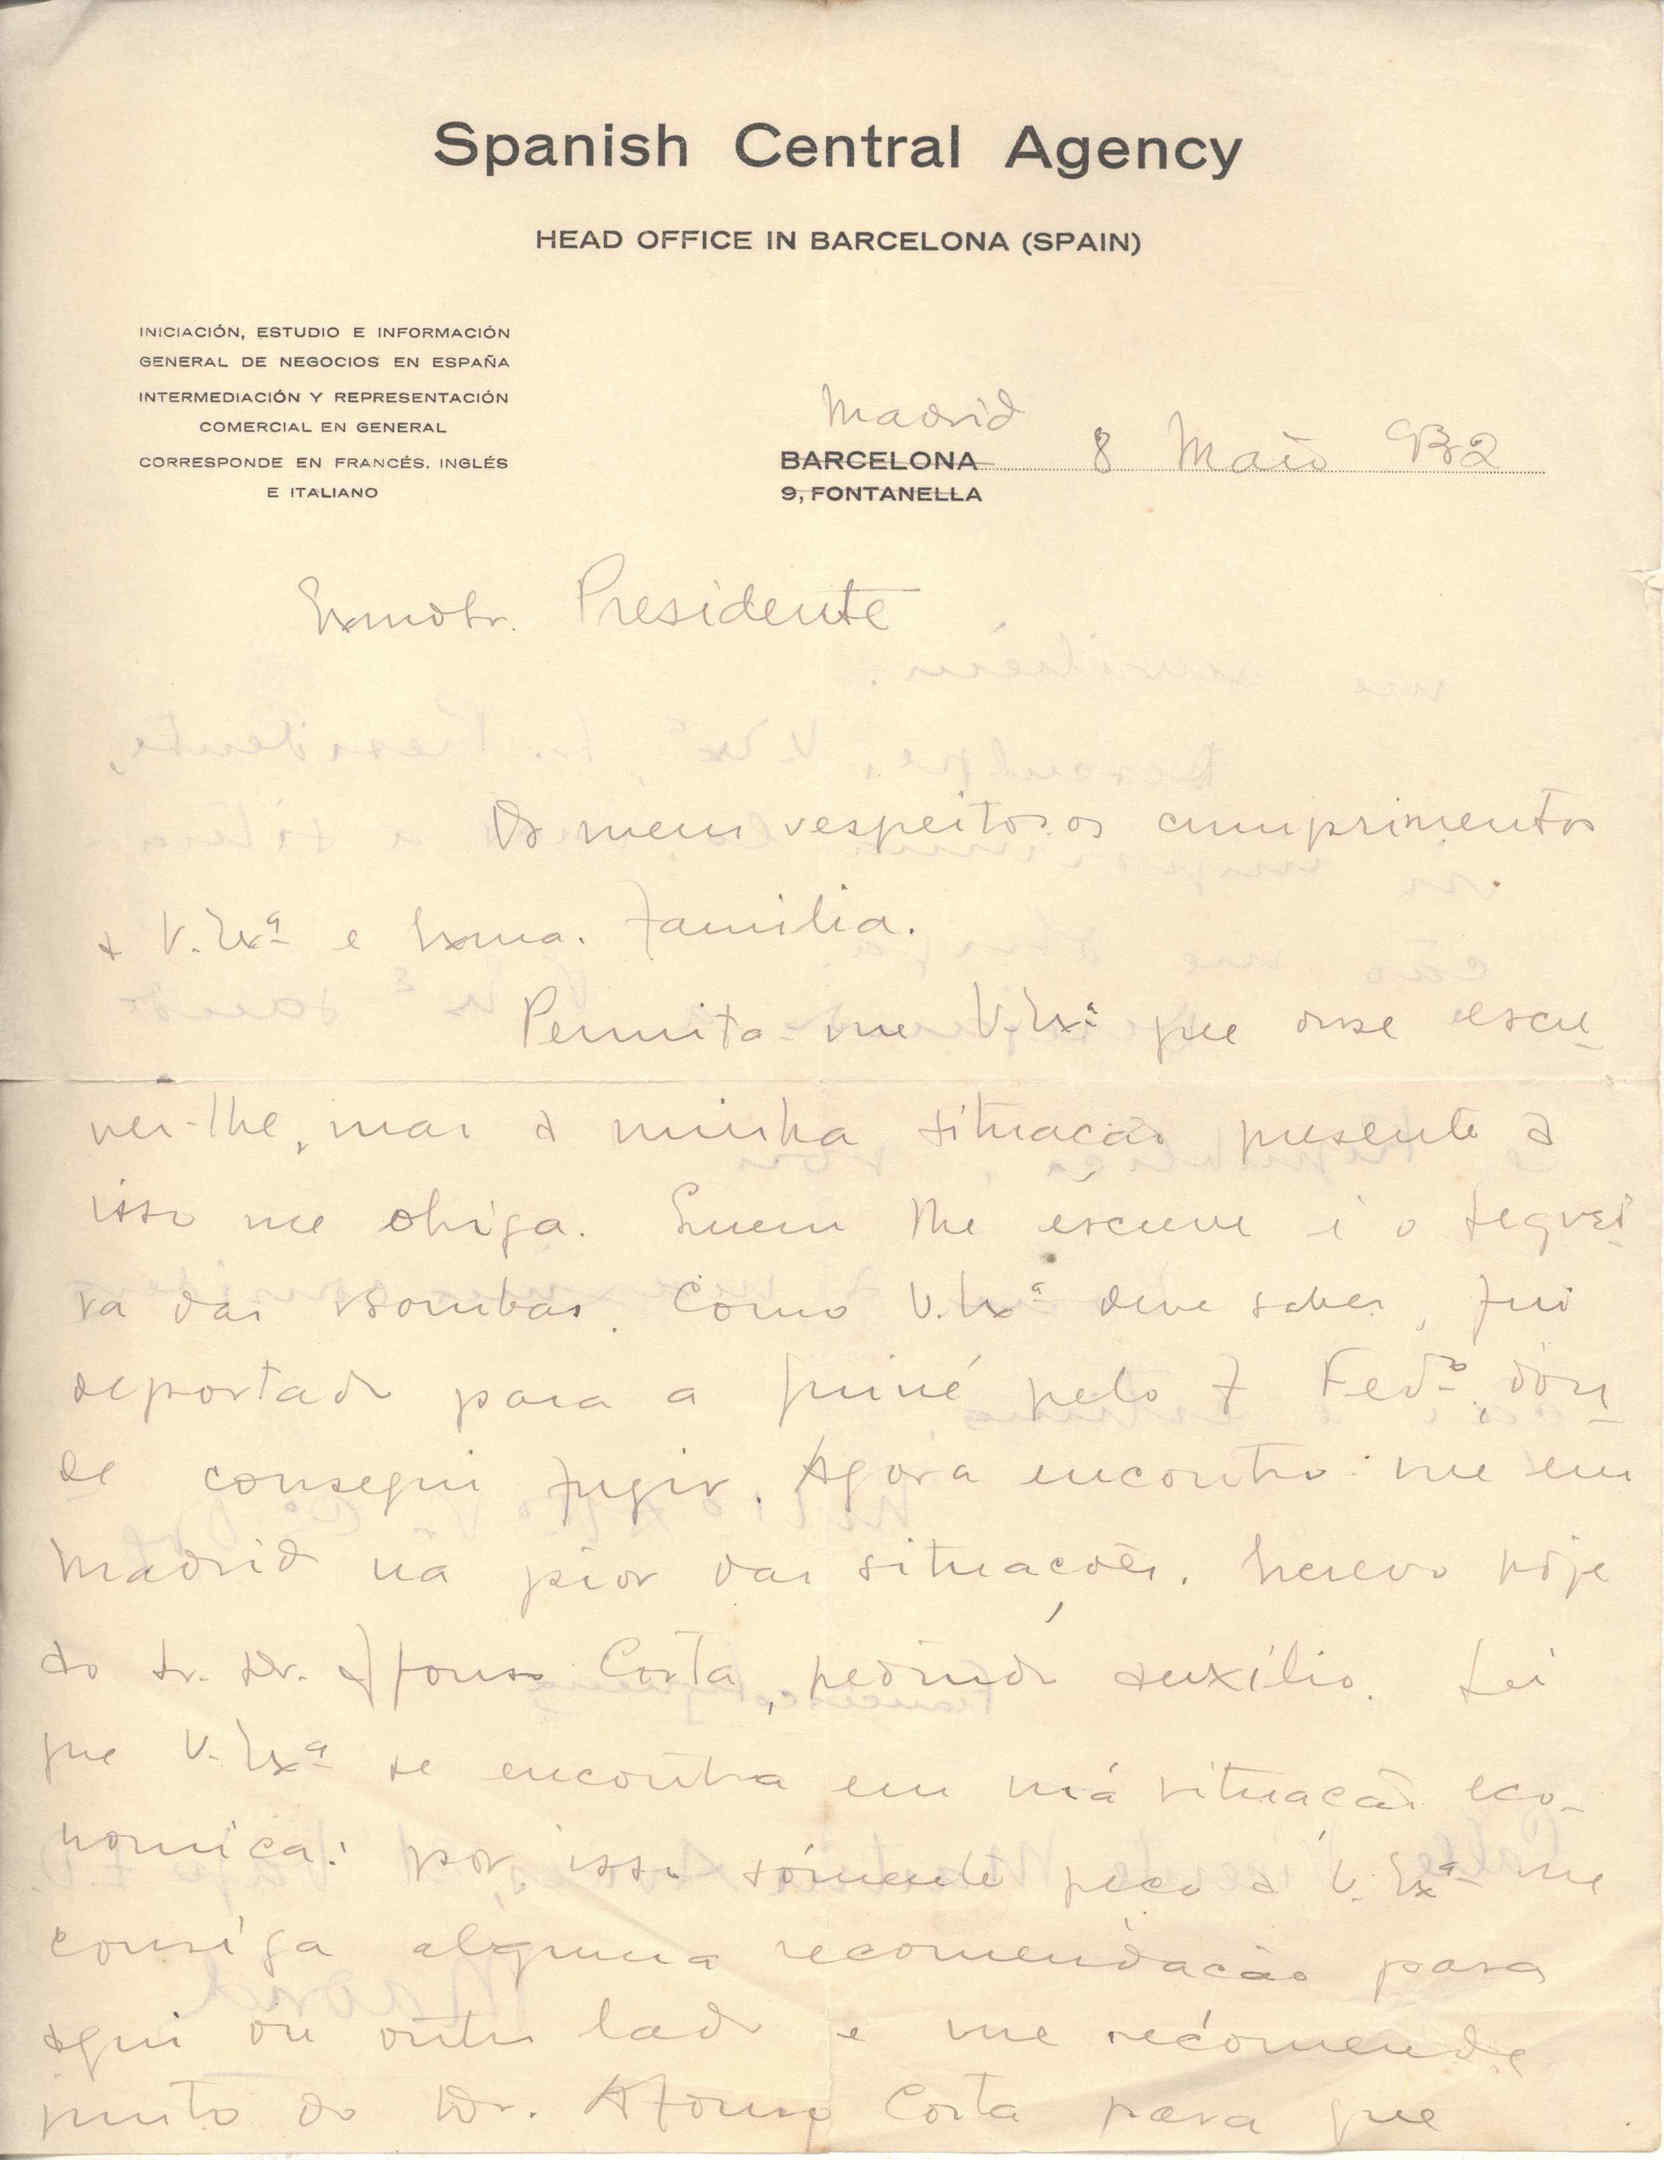 Spanish Central Agency
HEAD OFFICE IN BARCELONA (SPAIN)
INICIACIÓN, ESTUDIO E INFORMACIÓN
GENERAL DE NEGOCIOS EN ESPAÑA
INTERMEDIACIÓN Y REPRESENTACIÓN
COMERCIAL EN GENERAL
CORRESPONDE EN FRANCÉS, INGLÉS
E ITALIANO
Madrid
BARCELONA 8 Maio 932
9, FONTANELLA
Exmo Sr. Presidente
Os meus respeitosos cumprimentos
a V. Exª e Exma. Familia.
Permita-me V. Exª que ouse escre-
ver-lhe, mas a minha situação presente a
isso me obriga. Quem lhe escreve é o Seguei-
ra das Bombas. Como V. Exª deve saber, fui
deportado para a Guiné pelo 7 Fedº, don-
de consegui fugir. Agora encontro-me em
Madrid na pior das situações. Escrevo hoje
ao Sr. Dr. Afonso Costa, pedindo auxílio. Sei
que V. Exª se encontra em má situação eco-
nomica: por isso sómente peço a V. Exª me
consiga alguma recomendação para
aqui ou outro lado e me recomende
junto do Dr. Afonso Costa para que